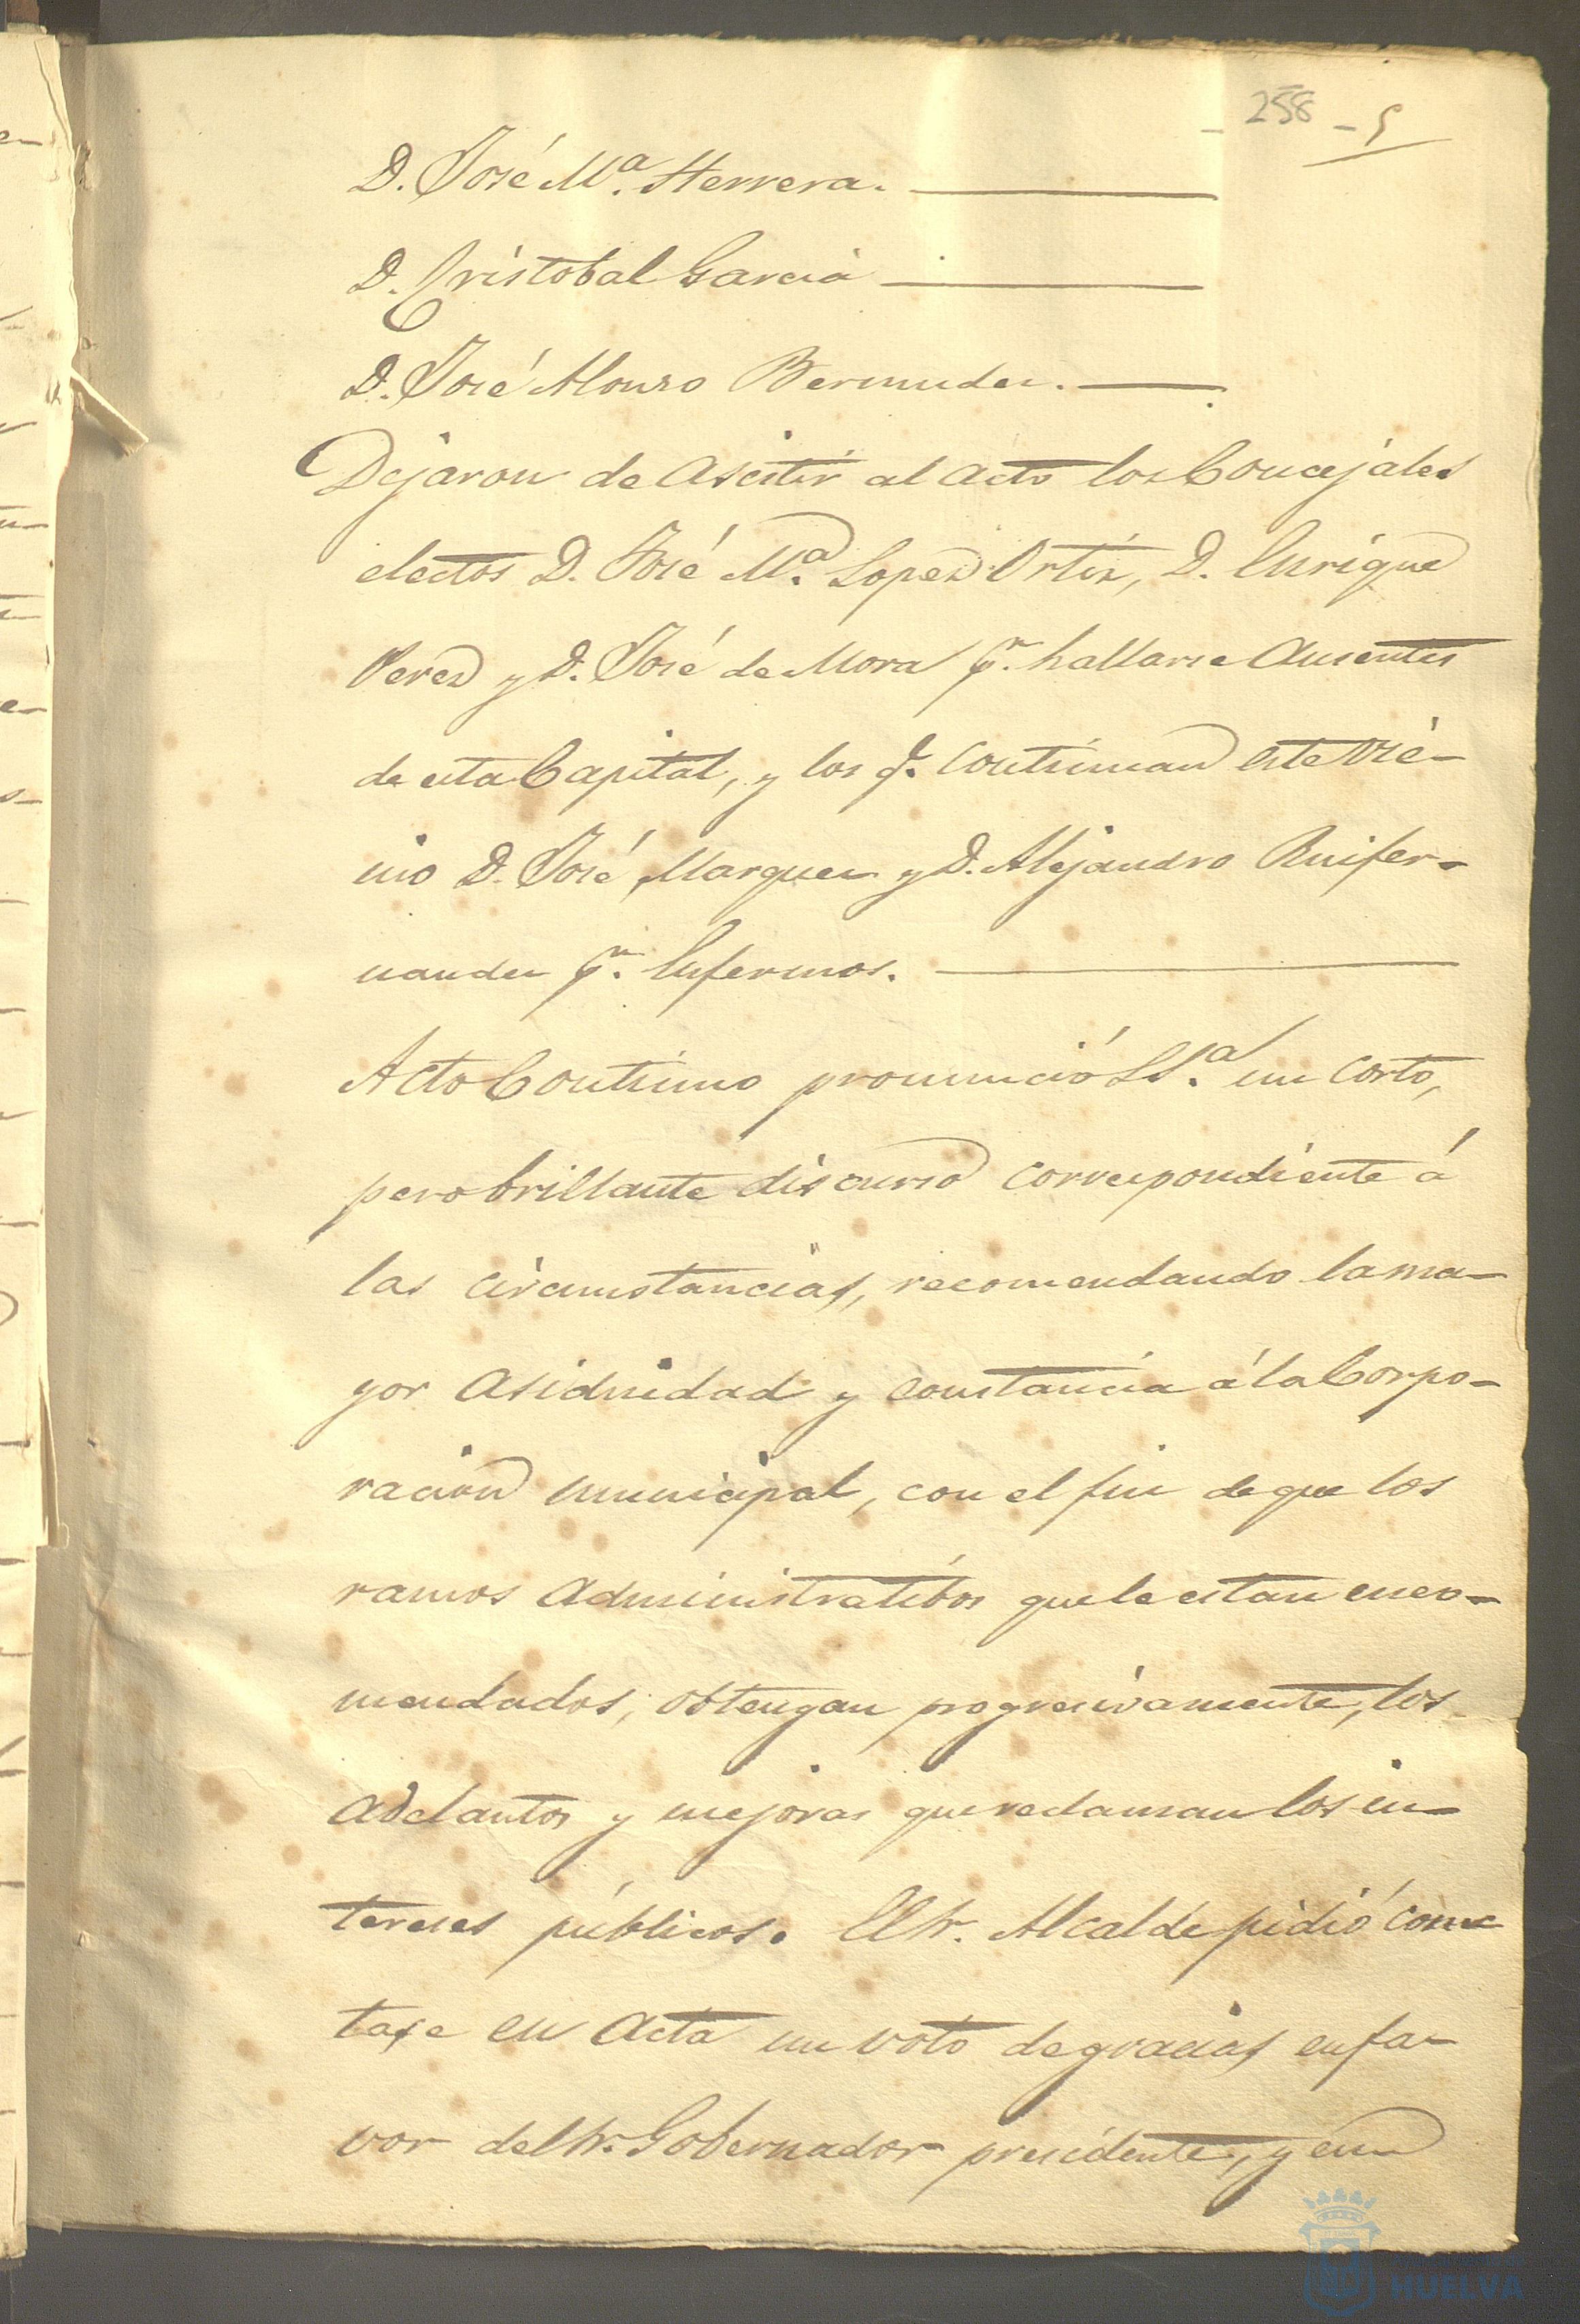 - 258 - 5
D. José Mª. Herrera.
D. Cristobal Garcia
D. José Alonso Bermudez.
Dejaron de Asistir al acto los Concejales
electos D. José Mª. Lopez Ortiz, D. Enrique
Perez y D. José de Mora pr. hallarse Ausentes
de esta Capital, y los q. continuan este vié-
nio D. José Marquez y D. Alejandro Ruifer-
nandez pr. Enfermos.
Acto Continuo pronunció SSª. un corto,
pero brillante discurso correspondiente á
las circunstancias, recomendando la ma-
yor Asiduidad y constancia á la Corpo-
racion municipal, con el fin de que los
ramos Administratibos que le estan enco-
mendados, obtengan progresivamente, los
Adelantos y mejoras que reclaman los in-
tereses públicos. El Sr. Alcalde pidió cons-
tase en Acta un voto de gracias en fa-
vor del Sr. Gobernador presidente, y en
HUELVA